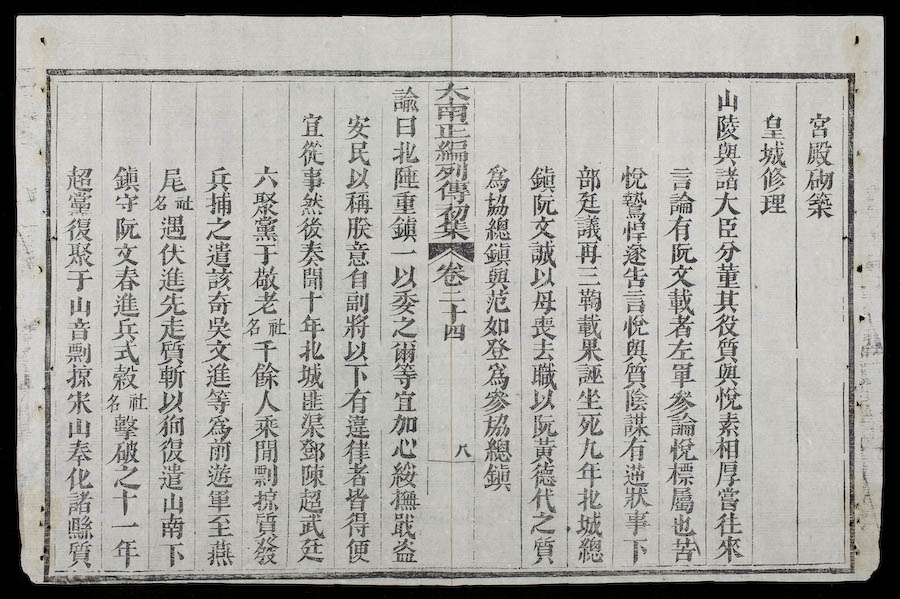 宮殿砌築
皇城修理
山陵與諸大臣分董其役質與悅素相厚嘗往來
言論有阮文載者左軍參論悅標屬也苦
悅鷙悍遂告言悅與質陰謀有逆狀事下
部廷議再三鞫載果誣坐死九年北城總
鎮阮文誠以母喪去職以阮黃德代之質
為協總鎮與范如登為參協總鎮
大南正編列傳初集 卷二十四 八
諭曰北陲重鎮一以委之爾等宜加心綏撫戢盜
安民以稱朕意自副將以下有違律者皆得便
宜從事然後奏聞十年北城匪渠鄧陳超武廷
六聚黨于敬老社名千餘人乘間剽掠質發
兵捕之遣該奇吳文進等為前遊軍至燕
尾社名遇伏進先走質斬以狥復遣山南下
鎮守阮文春進兵式穀社名擊破之十一年
超黨復聚于山音剽掠宋山奉化諸縣質